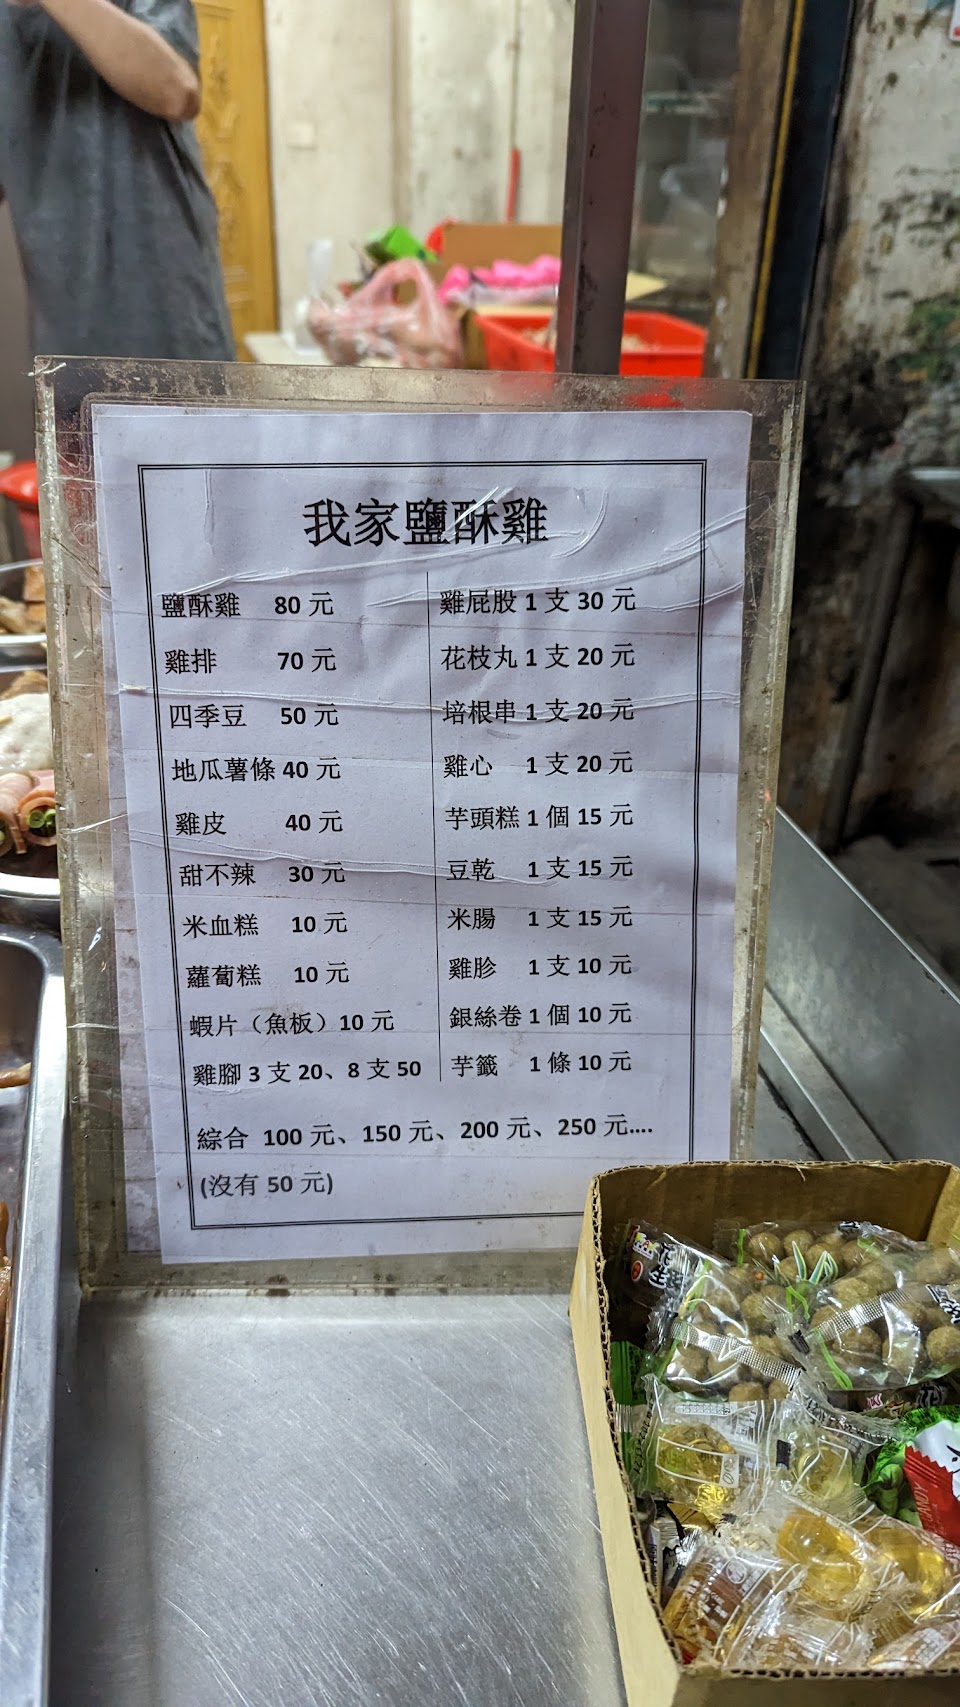 我家鹽酥雞
鹽酥雞 80 元
雞排 70 元
四季豆 50 元
地瓜薯條 40 元
雞皮 40 元
甜不辣 30 元
米血糕 10 元
蘿蔔糕 10 元
蝦片（魚板）10 元
雞腳 3 支 20、8 支 50
雞屁股 1 支 30 元
花枝丸 1 支 20 元
培根串 1 支 20 元
雞心 1 支 20 元
芋頭糕 1 個 15 元
豆乾 1 支 15 元
米腸 1 支 15 元
雞胗 1 支 10 元
銀絲卷 1 個 10 元
芋籤 1 條 10 元
綜合 100 元、150 元、200 元、250 元....
(沒有 50 元)
CANDY